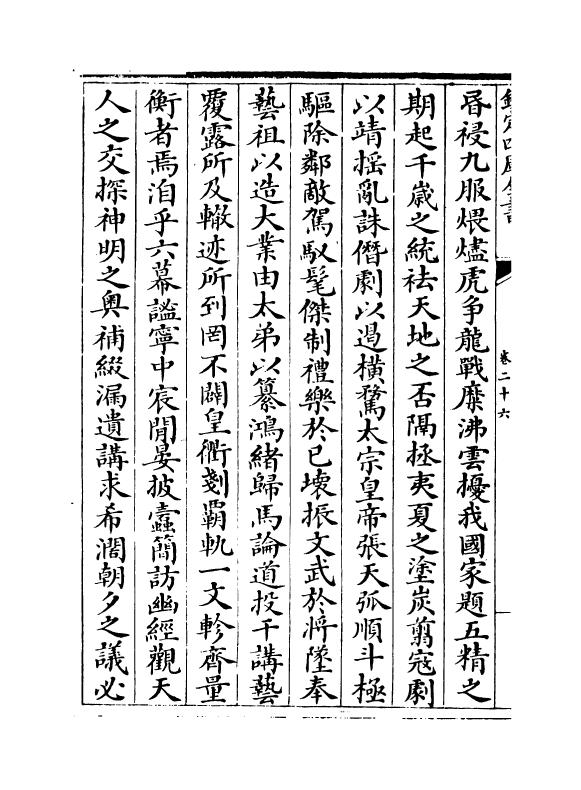 欽定四庫全書
卷二十六
昬祲九服煨燼虎争龍戰糜沸雲擾我國家題五精之
期起千歳之統袪天地之否隔拯夷夏之塗炭翦寇劇
以靖揺亂誅僭劇以遏横騖太宗皇帝張天弧順斗極
驅除鄰敵駕馭髦傑制禮樂於已壊振文武於將墜奉
藝祖以造大業由太弟以纂鴻緒歸馬論道投干講藝
覆露所及轍迹所到罔不闢皇衢剗覇軌一文軫齊量
衡者焉洎乎六幕謐寧中宸閒晏披蠧簡訪幽經觀天
人之交探神明之奥補綴漏遺講求希濶朝夕之議必